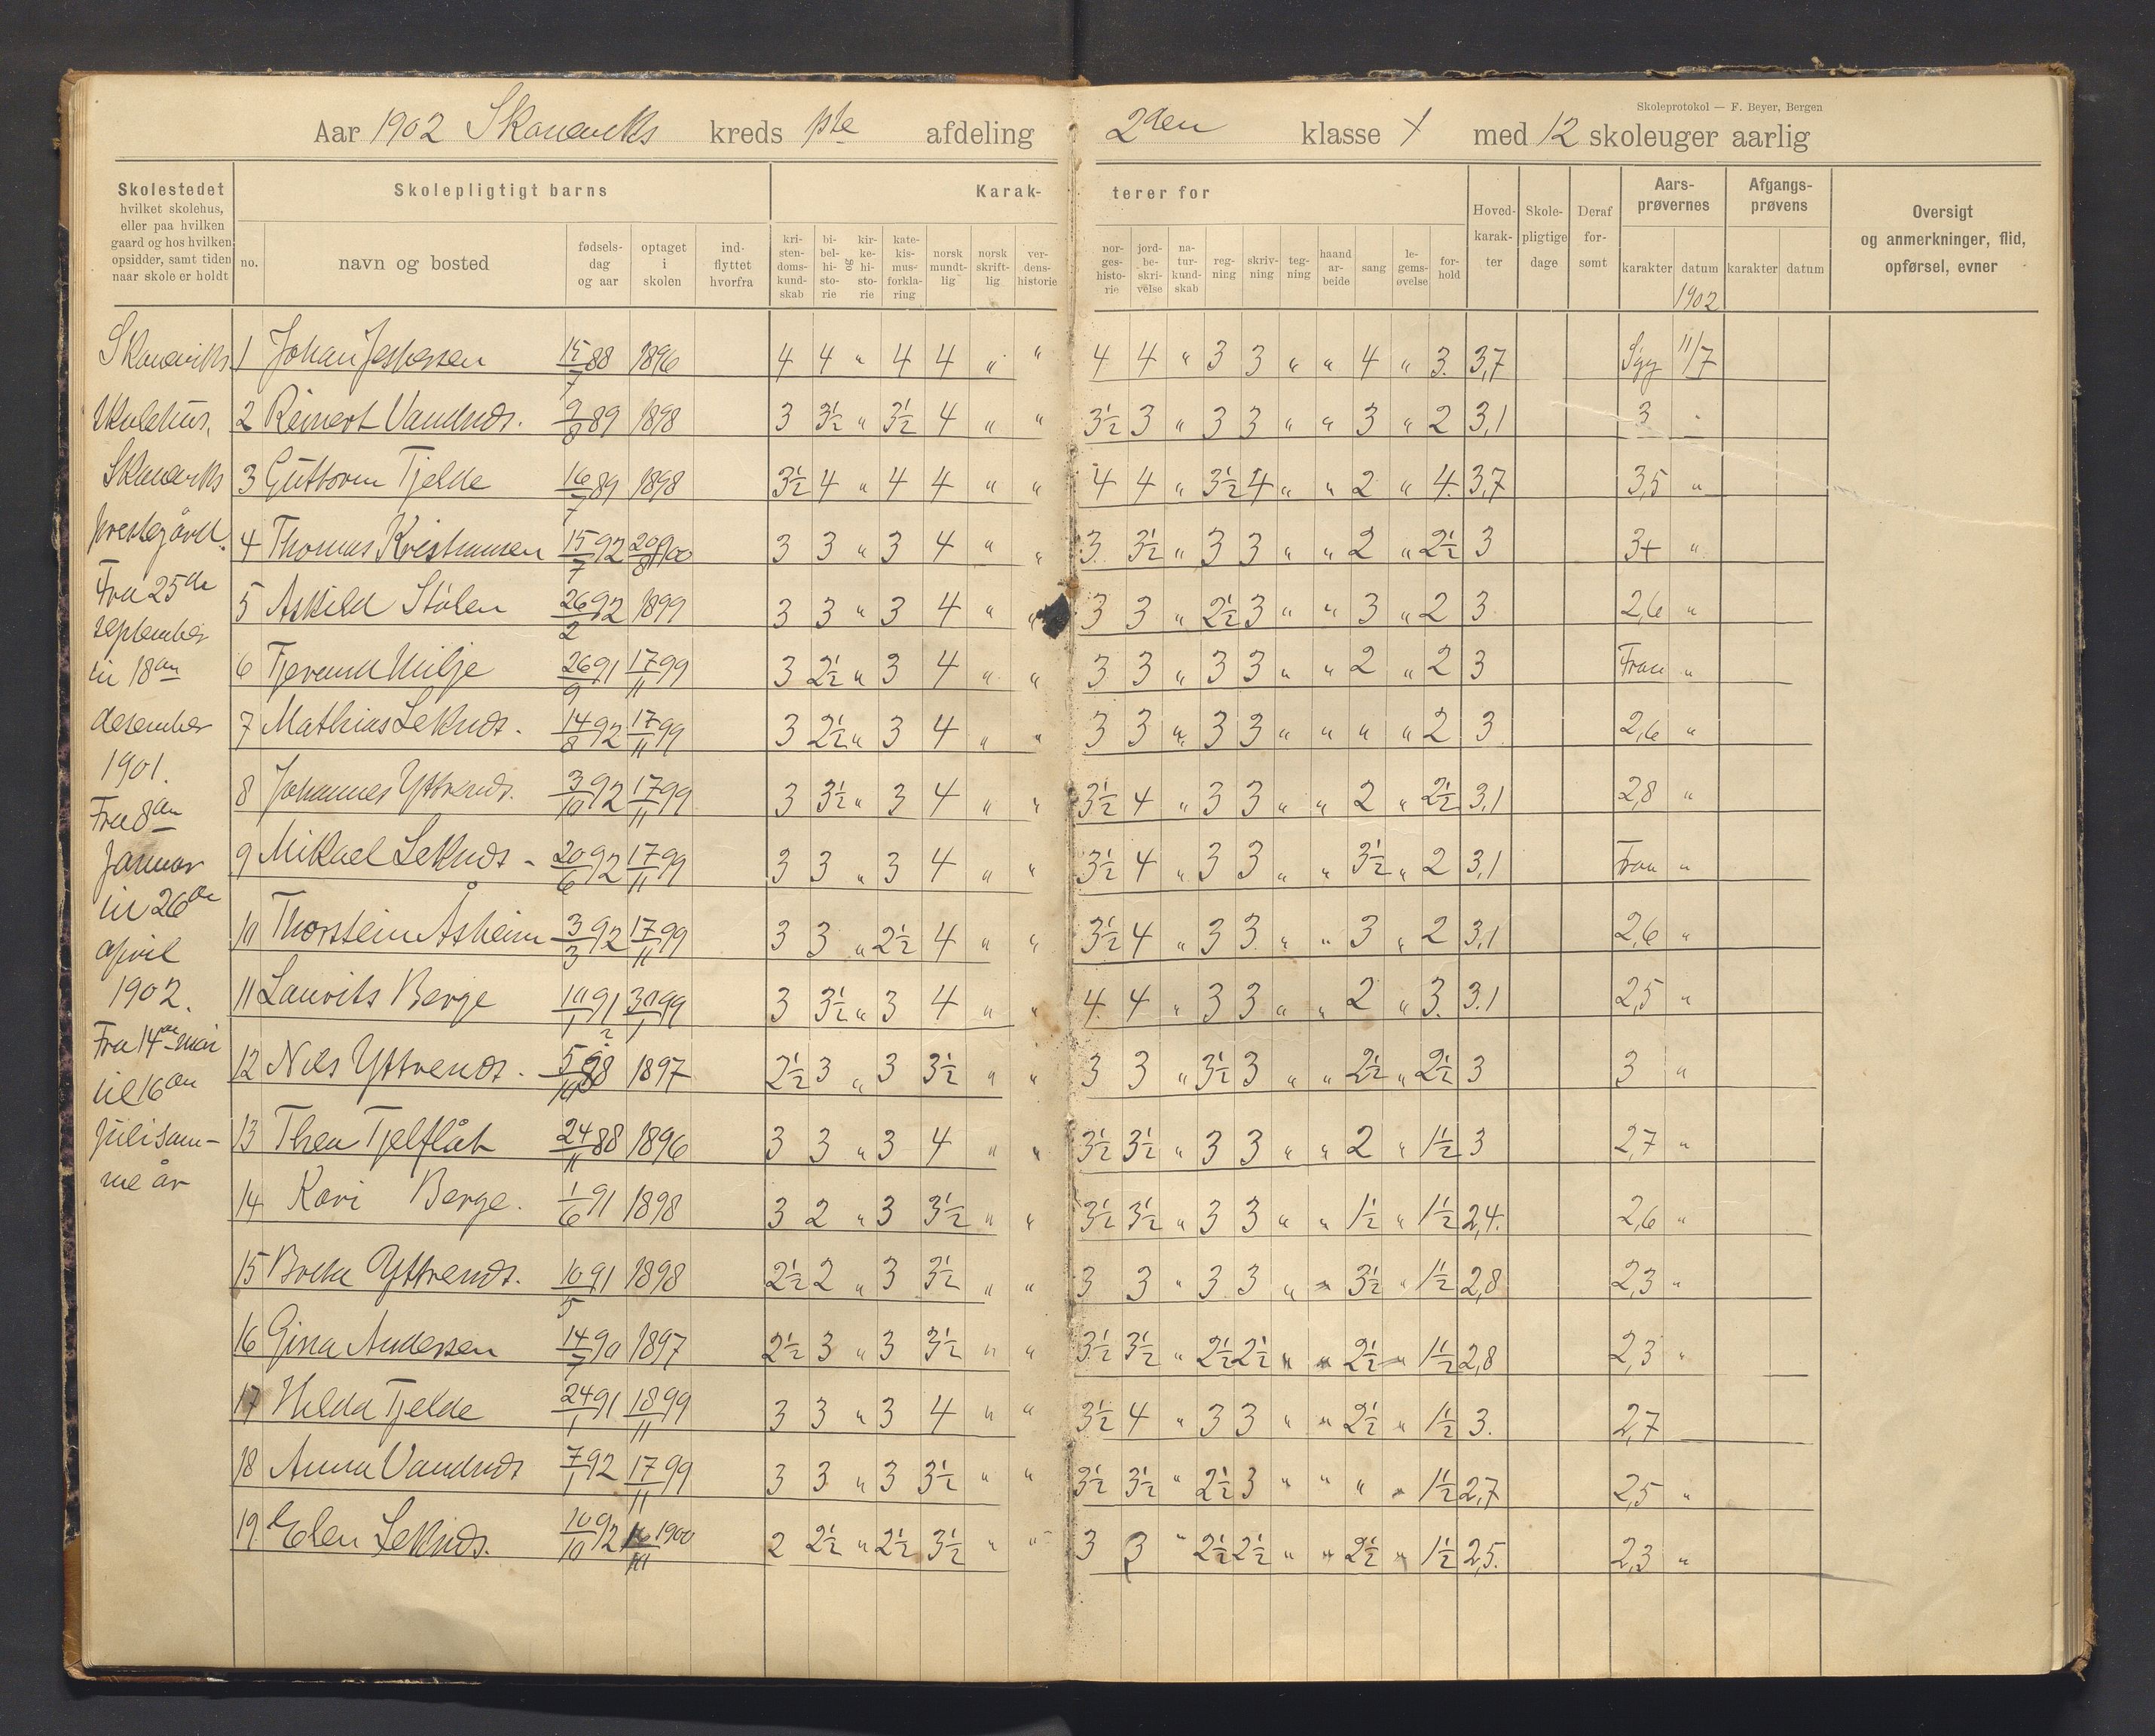 Skoleprotokol — F. Beyer, Bergen
Aar 1902 Skoneviks kreds 1ste afdeling 2den klasse med 12 skoleuger aarlig
Skolestedet
hvilket skolehus,
eller paa hvilken
gaard og hos hvilken
opsidder, samt tiden
naar skole er holdt
Skolepligtigt barns
no.
navn og bosted
fødsels-
dag
og aar
optaget
i
skolen
ind-
flyttet
hvorfra
Karak-
terer for
kri-
sten-
doms-
kund-
skab
bi-
bel-
hi-
sto-
rie
og
kir-
ke-
hi-
sto-
rie
kate-
kis-
mus-
forkla-
ring
norsk
mundt-
lig
norsk
skrift-
lig
ver-
dens-
historie
nor-
ges-
histo-
rie
jord-
be-
skri-
velse
na-
tur-
kund-
skab
reg-
ning
skriv-
ning
teg-
ning
haand
ar-
beide
sang
le-
gems-
øvelse
for-
hold
Hoved-
karak-
ter
Skole-
pligtige
dage
Deraf
for-
sømt
Aars-
prøvernes
karakter
datum
1902
Afgangs-
prøvens
karakter
datum
Oversigt
og anmerkninger, flid,
opførsel, evner
Skoneviks
skulehus,
Skoneviks
prestegård.
Fra 25de
september
til 18de
desember
1901.
Fra 8de
januar
til 26de
april
1902.
Fra 14de mai
til 16de
juli sam-
me år
1 Johan Jespersen 15/7 88 1896 4 4 " 4 4 " " 4 4 " 3 3 " " 4 " 3. 3,7 Syg 11/7
2 Reinert Vandnds. 9/8 89 1898 3 3½ " 3½ 4 " " 3½ 3 " 3 3 " " 3 " 2 3,1 3 "
3 Guttorm Tjelde 16/7 89 1898 3½ 4 " 4 4 " " 4 4 " 3½ 4 " " 2 " 4. 3,7 3,5 "
4 Thomas Kristiansen 15/7 92 20/8 00 3 3 " 3 4 " " 3. 3½ " 3 3 " " 2 " 2½ 3 3+ "
5 Askild Stølen 26/2 92 1899 3 3 " 3 4 " " 3 3 " 2½ 3 " " 3 " 2 3 2,6 "
6 Tjerand Milje 26/9 91 17/11 99 3 2½ " 3 4 " " 3 3 " 3 3 " " 2 " 2 3 Frav "
7 Mathias Leknds. 14/8 92 17/11 99 3 2½ " 3 4 " " 3 3 " 3 3 " " " " 2 3 2,6 "
8 Johannes Yttrends. 3/10 92 17/11 99 3 3½ " 3 4 " " 3½ 4 " 3 3 " " 2 " 2½ 3,1 2,8 "
9 Mikael Leknds - 20/6 92 17/11 99 3 3 " 3 4 " " 3½ 4 " 3 3 " " 3½ " 2 3,1 Frav "
10 Thorstein Åsheim 3/3 92 17/11 99 3 3 " 2½ 4 " " 3½ 4 " 3 3 " " 3 " 2 3,1 2,6 "
11 Laurits Berge 10/1 91 30/1 99 3 3½ " 3 4 " " 4. 4 " 3 3 " " 2 " 3. 3.1 2,5 "
12 Nils Yttrends. 5/10 88 1897 2½ 3 " 3 3½ " " 3 3 " 3½ 3 " " 2½ " 2½ 3 3 "
13 Thea Tjelflåt 24/11 88 1896 3 3 " 3 4 " " 3½ 3½ " 3 3 " " 2 " 1½ 3 2,7 "
14 Kari Berge. 1/6 91 1898 3 2 " 3 3½ " " 3½ 3½ " 3 3 " " 1½ " 1½ 2,4. 2,6 "
15 Yttrends. 10/5 91 1898 2½ 2 " 3 3½ " " 3 3 " 3 3 " " 3½ " 1½ 2,8 2,3 "
16 Gina Andersen 14/7 90 1897 2½ 3 " 3 3½ " " 3½ 3½ " 2½ 2½ " " 2½ " 1½ 2,8 2,3 "
17 Hilda Tjelde 24/1 91 18/11 99 3 3 " 3 4 " " 3½ 4 " 3 3 " " 2½ " 1½ 3. 2,7
18 Anna Vandnds 7/1 92 17/11 99 3 3 " 3 3½ " " 3½ 3½ " 2½ 3 " " " " 1½ 2,7 2,5 "
19. Elen Leknds. 10/10 92 1900 2 2½ " 2½ 3½ " " 3 3 " 2½ 2½ " " 2½ " 1½ 2,5. 2,3 "